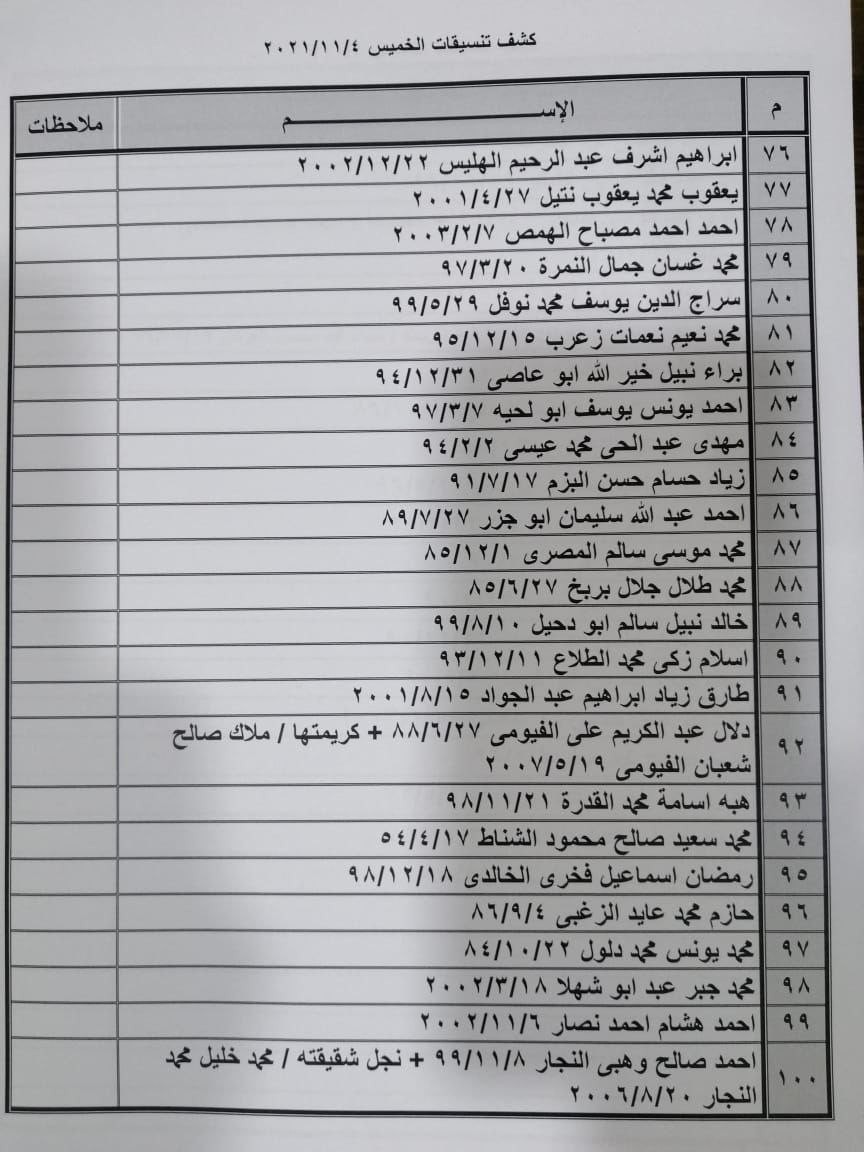 كشف تنسيقات الخميس ٢٠٢١/١١/٤
م الإســـــــــــــــم ملاحظات
٧٦ ابراهيم اشرف عبد الرحيم الهليس ٢٠٠٢/١٢/٢٢
٧٧ يعقوب محمد يعقوب نتيل ٢٠٠١/٤/٢٧
٧٨ احمد احمد مصباح الهمص ٢٠٠٣/٢/٧
٧٩ محمد غسان جمال النمرة ٩٧/٣/٢٠
٨٠ سراج الدين يوسف محمد نوفل ٩٩/٥/٢٩
٨١ محمد نعيم نعمات زعرب ٩٥/١٢/١٥
٨٢ براء نبيل خير الله ابو عاصى ٩٤/١٢/٣١
٨٣ احمد يونس يوسف ابو لحيه ٩٧/٣/٧
٨٤ مهدى عبد الحى محمد عيسى ٩٤/٢/٢
٨٥ زياد حسام حسن البزم ٩١/٧/١٧
٨٦ احمد عبد الله سليمان ابو جزر ٨٩/٧/٢٧
٨٧ محمد موسى سالم المصرى ٨٥/١٢/١
٨٨ محمد طلال جلال بربخ ٨٥/٦/٢٧
٨٩ خالد نبيل سالم ابو دحيل ٩٩/٨/١٠
٩٠ اسلام زكى محمد الطلاع ٩٣/١٢/١١
٩١ طارق زياد ابراهيم عبد الجواد ٢٠٠١/٨/١٥
٩٢ دلال عبد الكريم على الفيومى ٨٨/٦/٢٧ + كريمتها / ملاك صالح
شعبان الفيومى ٢٠٠٧/٥/١٩
٩٣ هبه اسامة محمد القدرة ٩٨/١١/٢١
٩٤ محمد سعيد صالح محمود الشناط ٥٤/٤/١٧
٩٥ رمضان اسماعيل فخرى الخالدى ٩٨/١٢/١٨
٩٦ حازم محمد عايد الزغبى ٨٦/٩/٤
٩٧ محمد يونس محمد دلول ٨٤/١٠/٢٢
٩٨ محمد جبر عبد ابو شهلا ٢٠٠٢/٣/١٨
٩٩ احمد هشام احمد نصار ٢٠٠٢/١١/٦
١٠٠ احمد صالح وهبى النجار ٩٩/١١/٨ + نجل شقيقته / محمد خليل محمد
النجار ٢٠٠٦/٨/٢٠